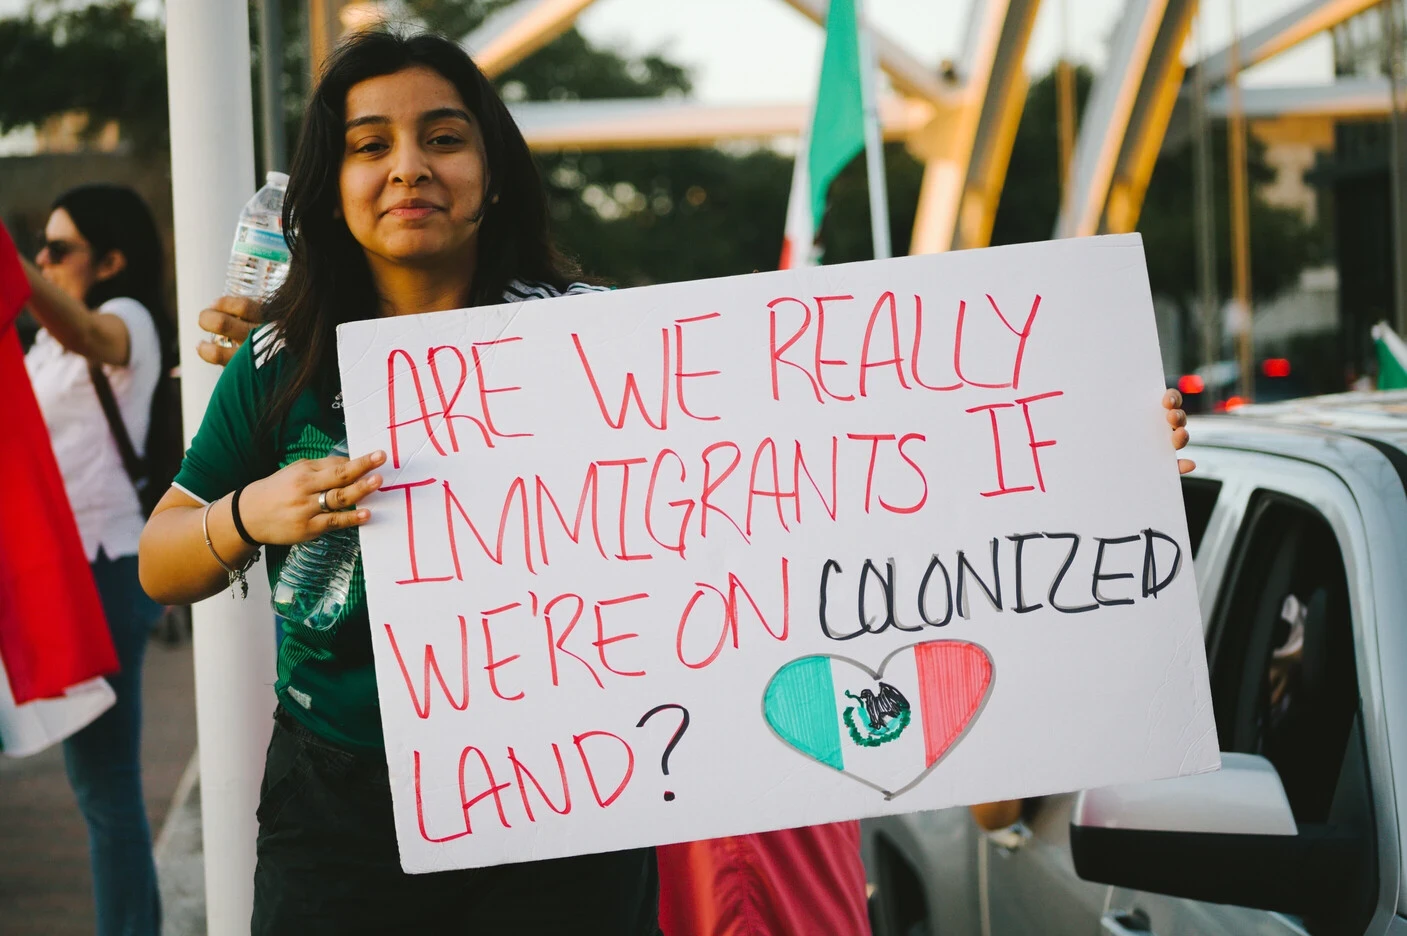 ARE WE REALLY
IMMIGRANTS IF
WE'RE ON COLONIZED
LAND?